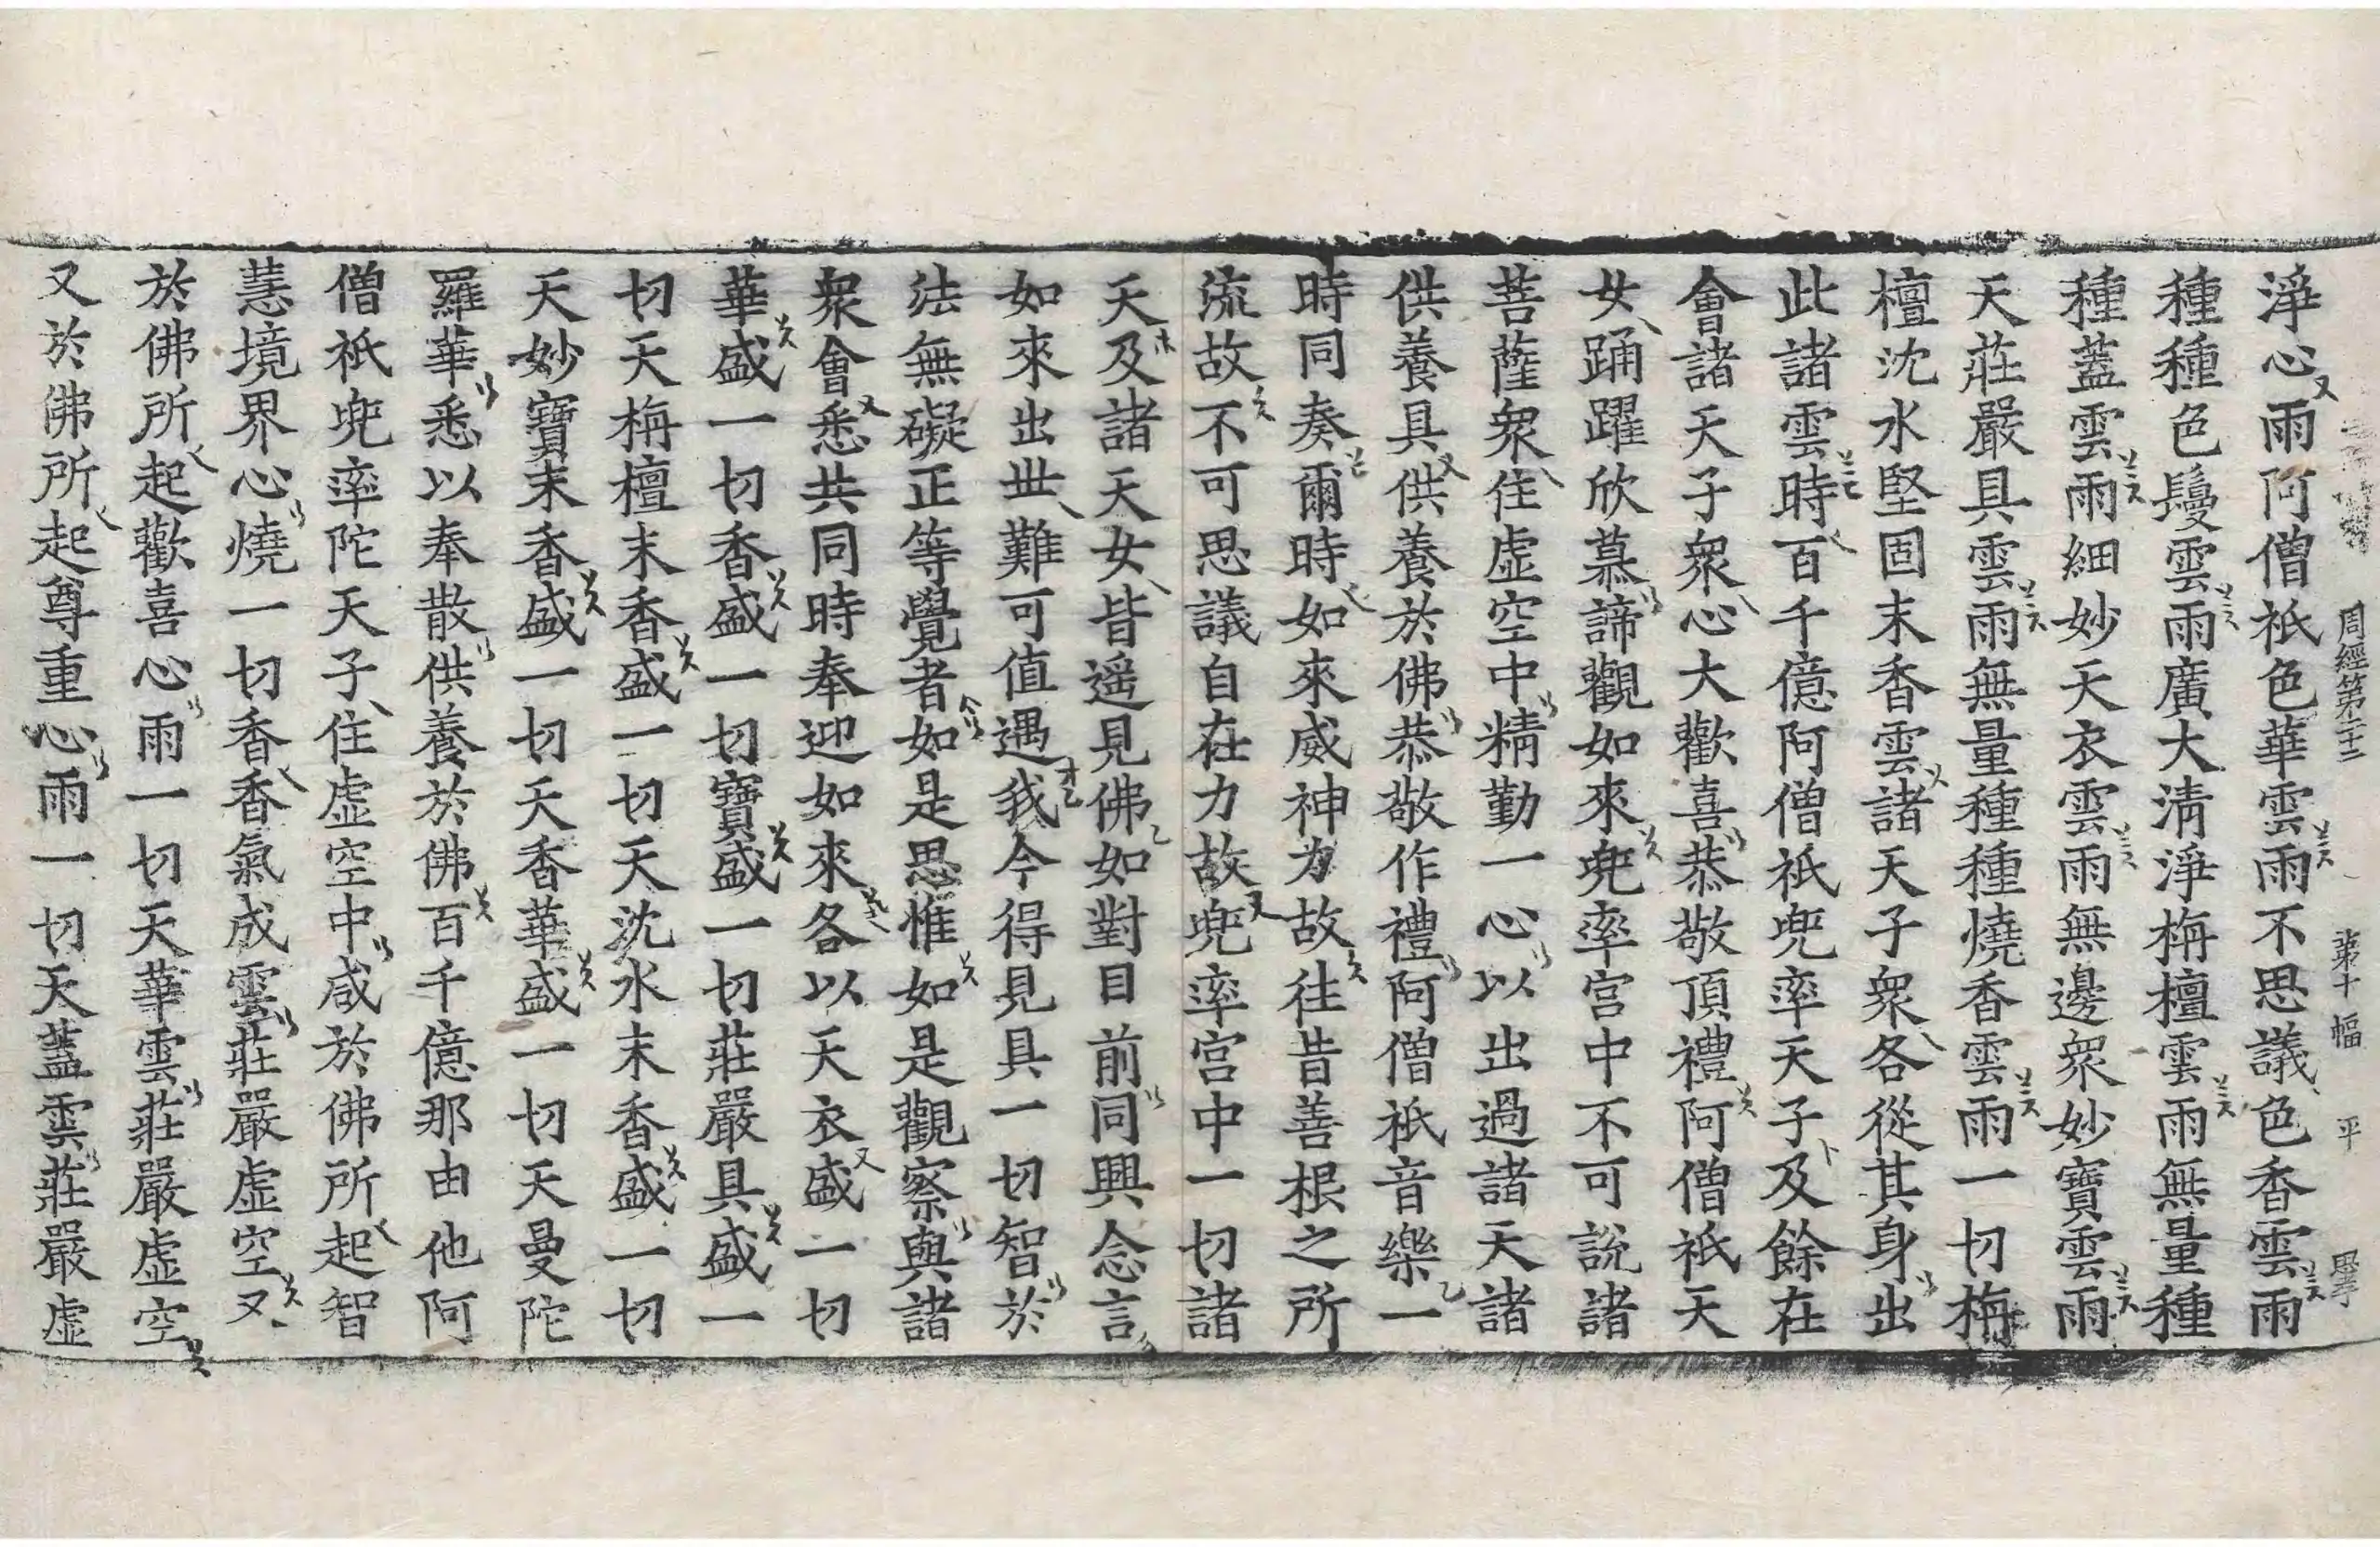 周經第二十二 第十幅 平
淨心雨阿僧祇色華雲雨不思議色香雲雨
種種色鬘雲雨廣大清淨栴檀雲雨無量種
種蓋雲雨細妙天衣雲雨無邊衆妙寶雲雨
天莊嚴具雲雨無量種種燒香雲雨一切栴
檀沈水堅固末香雲諸天子衆各從其身出
此諸雲時百千億阿僧祇兜率天子及餘在
會諸天子衆心大歡喜恭敬頂禮阿僧祇天
女踊躍欣慕諦觀如來兜率宮中不可說諸
菩薩衆住虛空中精勤一心以出過諸天諸
供養具供養於佛恭敬作禮阿僧祇音樂一
時同奏爾時如來威神力故往昔善根之所
流故不可思議自在力故兜率宮中一切諸
天及諸天女皆遥見佛如對目前同興念言
如來出世難可值遇我今得見具一切智於
法無礙正等覺者如是思惟如是觀察與諸
衆會悉共同時奉迎如來各以天衣盛一切
華盛一切香盛一切寶盛一切莊嚴具盛一
切天栴檀末香盛一切天沈水末香盛一切
天妙寶末香盛一切天香華盛一切天曼陀
羅華悉以奉散供養於佛百千億那由他阿
僧祇兜率陀天子住虛空中咸於佛所起智
慧境界心燒一切香香氣成雲莊嚴虛空又
於佛所起歡喜心雨一切天華雲莊嚴虛空
又於佛所起尊重心雨一切天蓋雲莊嚴虛